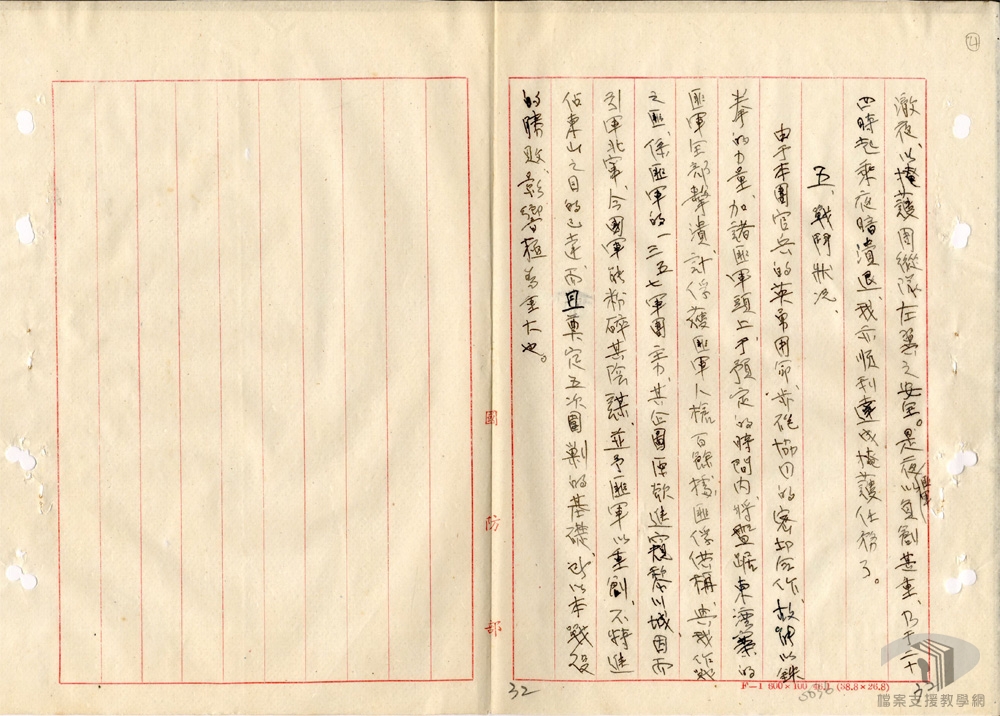 21
澈夜，以掩護團縱隊左翼之安全。是夜匪軍以負創甚重，乃于二十
四時起乘夜暗潰退，我亦順利達成掩護任務了。
五、戰鬥狀況、
由于本團官兵的英勇用命，步砲協同的密切合作，故能以鉄
拳的力量，加諸匪軍頭上，于預定的時間內，將盤踞東山 的
匪軍全部擊潰，計俘獲匪軍人槍百餘，據匪俘供稱，與我作戰
之匪，係匪軍的一三五七軍團主力，其企圖原欲進窺黎川城，因而
引軍北窜，今國軍能粉碎其陰謀，並予匪軍以重創，不特進
佔東山之目的已達，而且奠定五次圍剿的基礎，所以本戰役
的勝敗，影響極為重大也。
國防部
32
F—1 600×100 (38.8×26.8)
33
檔案支援教學網